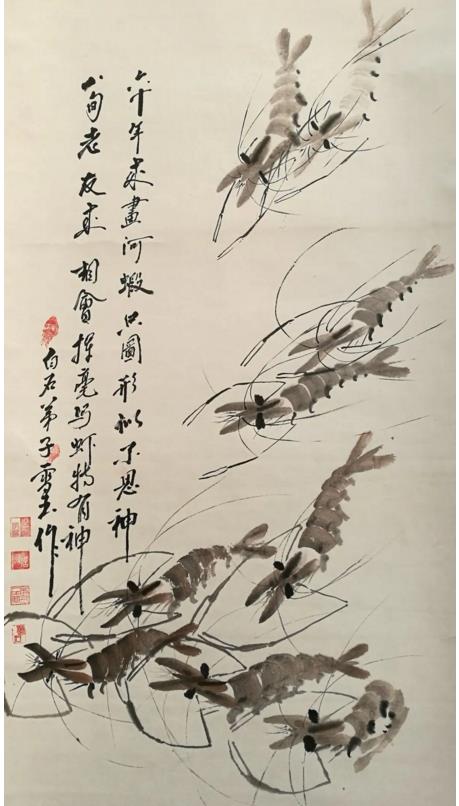 六十年来畫河蝦只圖形似不思神
八旬老友来相會揮毫写虾特有神
白石弟子雪玉作